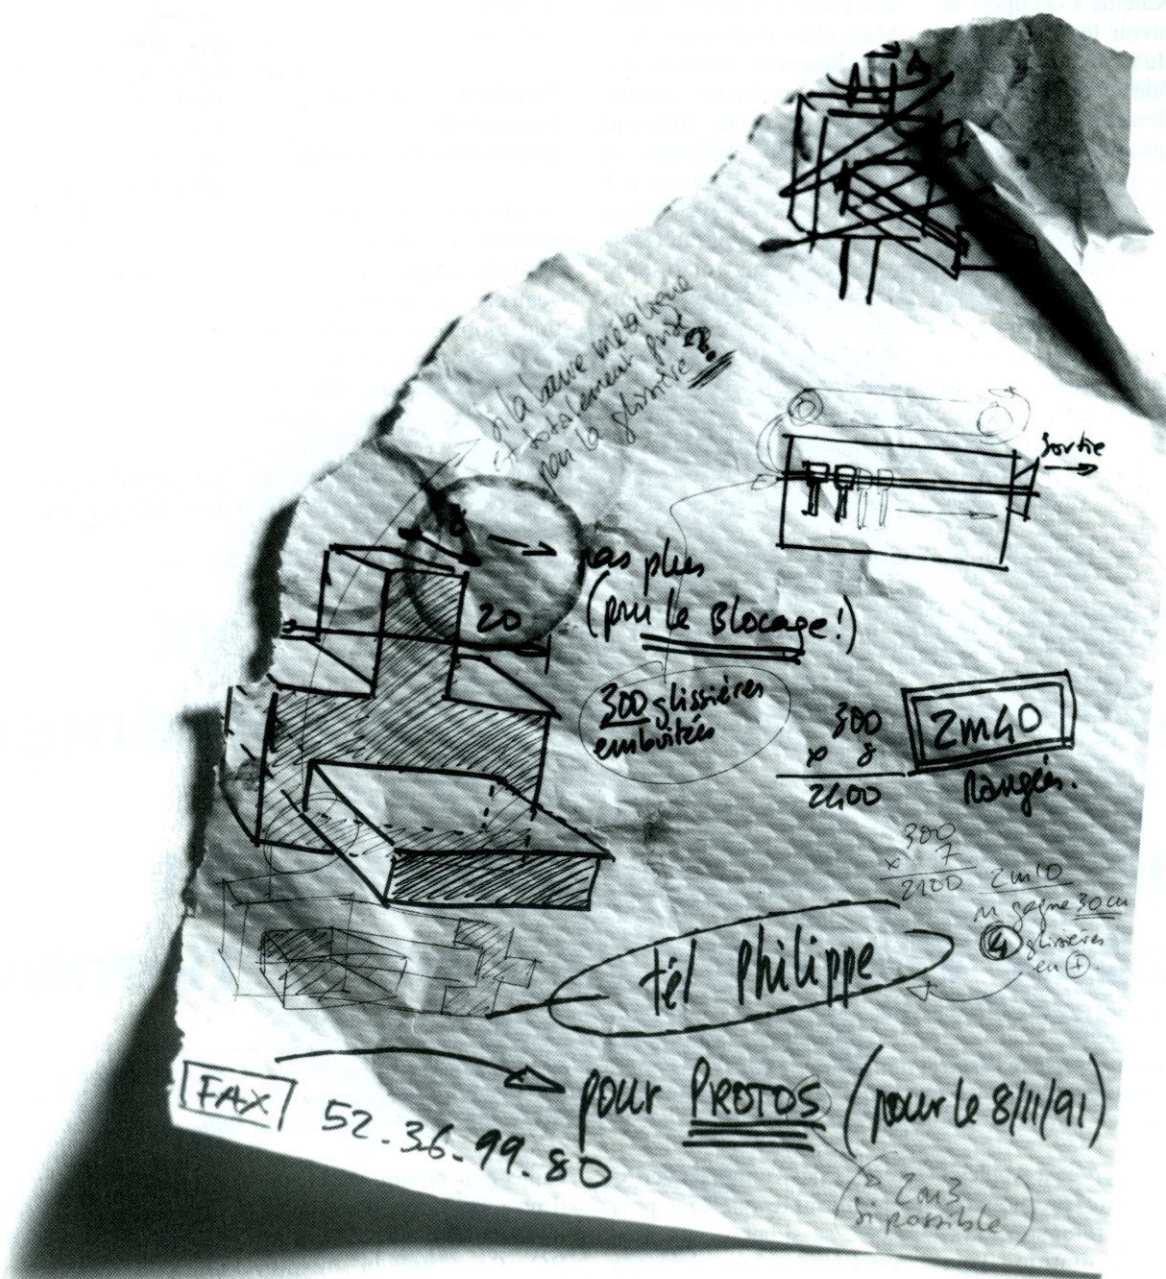 si la barre métalique
et totalement prise
par la glissière
Sortie
8
pas plus
20
(pour le Blocage!)
300 glissières
emboîtées
300
x 8
2400
2m40
Rangés.
300
x 7
2100
2m10
on gagne 30 cm
4 glissières
en +
tél Philippe
FAX
52.36.99.80
pour PROTOS (pour le 8/11/91)
2 ou 3
si possible